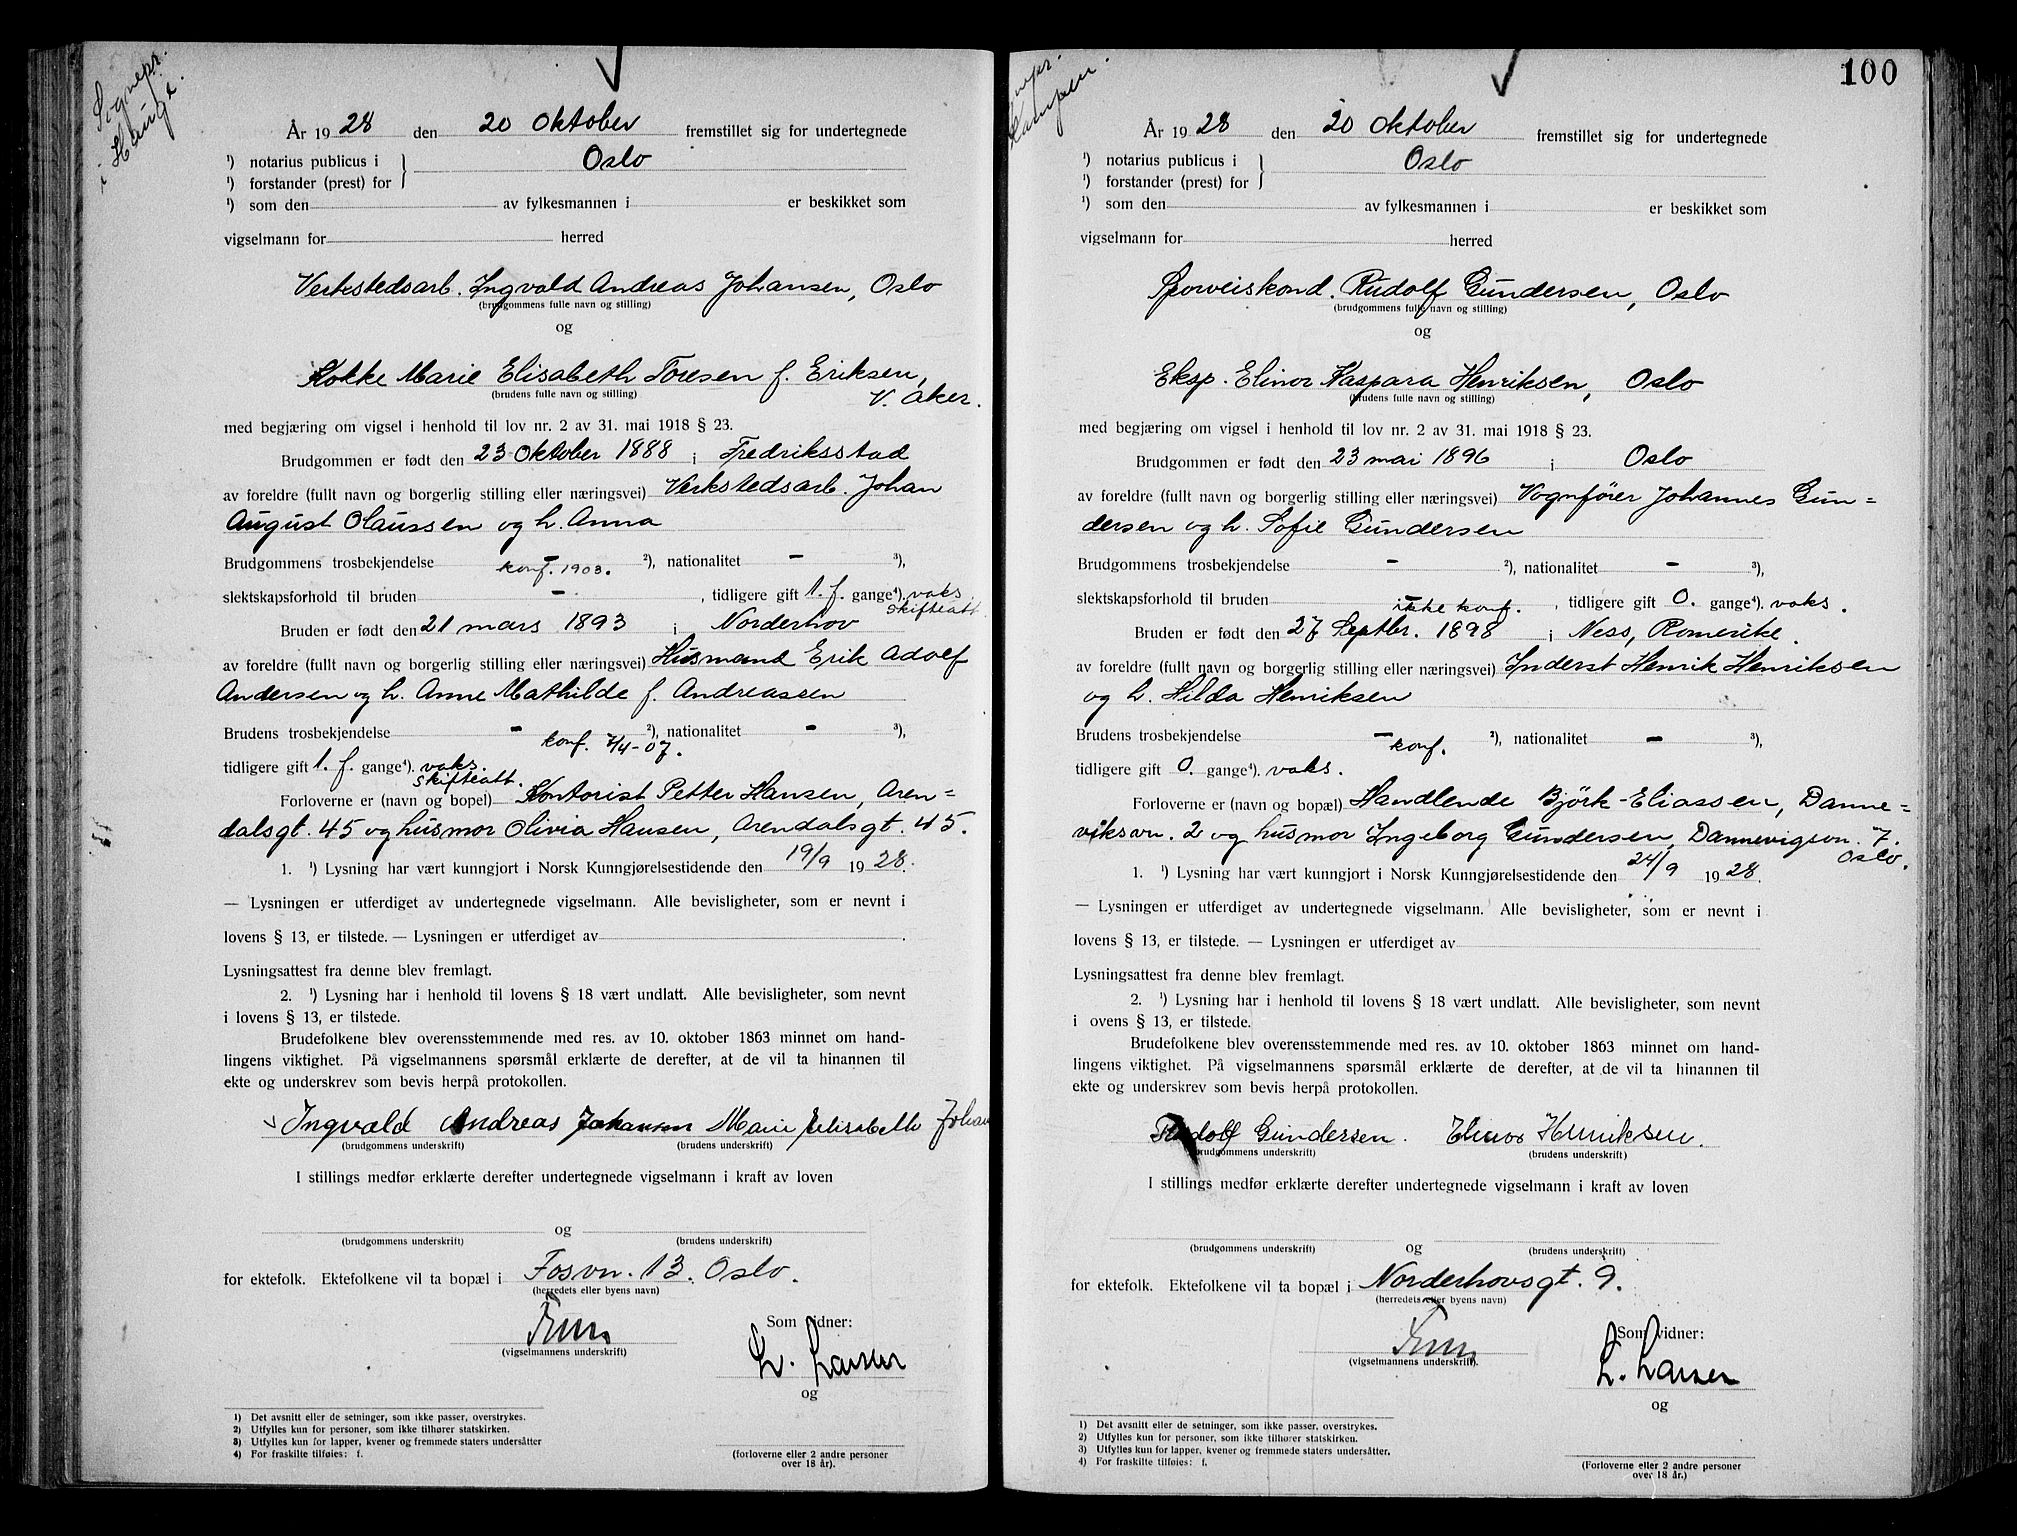 Sognepr.
i Hauge
År 1928 den 20 Oktober fremstillet sig for undertegnede
¹) notarius publicus i } Oslo
¹) forstander (prest) for
¹) som den av fylkesmannen i er beskikket som
vigselmann for herred
Verkstedsarb. Ingvald Andreas Johansen, Oslo
(brudgommens fulle navn og stilling)
og
Kokke Marie Elisabeth Toresen f. Eriksen,
(brudens fulle navn og stilling)
V. Aker.
med begjæring om vigsel i henhold til lov nr. 2 av 31. mai 1918 § 23.
Brudgommen er født den 23 Oktober 1888 i Fredriksstad
av foreldre (fullt navn og borgerlig stilling eller næringsvei) Verkstedsarb. Johan
August Olaussen og h. Anna
Brudgommens trosbekjendelse - ²), nationalitet - ³),
konf. 1903.
slektskapsforhold til bruden -. , tidligere gift 1. f. gange⁴). vaks.
skifteatt.
Bruden er født den 21 mars 1893 i Norderhov
av foreldre (fullt navn og borgerlig stilling eller næringsvei) Husmand Erik Adolf
Andersen og h. Anne Mathilde f. Andreassen
Brudens trosbekjendelse - ²), nationalitet - ³),
konf. 7/4-07.
tidligere gift 1. f. gange⁴). vaks.
skifteatt.
Forloverne er (navn og bopel) Kontorist Petter Hansen, Aren=
dalsgt. 45 og husmor Olivia Hansen, Arendalsgt. 45.
1. ¹) Lysning har vært kunngjort i Norsk Kunngjørelsestidende den 19/9 1928.
— Lysningen er utferdiget av undertegnede vigselmann. Alle bevisligheter, som er nevnt i
lovens § 13, er tilstede. — Lysningen er utferdiget av .
Lysningsattest fra denne blev fremlagt.
2. ¹) Lysning har i henhold til lovens § 18 vært undlatt. Alle bevisligheter, som nevnt
i lovens § 13, er tilstede.
Brudefolkene blev overensstemmende med res. av 10. oktober 1863 minnet om hand-
lingens viktighet. På vigselmannens spørsmål erklærte de derefter, at de vil ta hinannen til
ekte og underskrev som bevis herpå protokollen.
Ingvald Andreas Johansen Marie Elisabeth Johan
(brudgommens underskrift) (brudens underskrift)
I stillings medfør erklærte derefter undertegnede vigselmann i kraft av loven
og
(brudgommens underskrift) (brudens underskrift)
for ektefolk. Ektefolkene vil ta bopæl i Fosvn. 13. Oslo.
(herredets eller byens navn)
Som vidner:
(vigselmannens underskrift)
L. Larsen
og
1) Det avsnitt eller de setninger, som ikke passer, overstrykes.
2) Utfylles kun for personer, som ikke tilhører statskirken.
3) Utfylles kun for lapper, kvener og fremmede staters undersåtter
4) For fraskilte tilføies: f.
(forloverne eller 2 andre personer
over 18 år).
100
Kampen.
År 1928 den 20 Oktober fremstillet sig for undertegnede
¹) notarius publicus i } Oslo
¹) forstander (prest) for
¹) som den av fylkesmannen i er beskikket som
vigselmann for herred
Sporveiskond. Rudolf Gundersen, Oslo
(brudgommens fulle navn og stilling)
og
Eksp. Elinor Kaspara Henriksen, Oslo
(brudens fulle navn og stilling)
med begjæring om vigsel i henhold til lov nr. 2 av 31. mai 1918 § 23.
Brudgommen er født den 23 mai 1896 i Oslo
av foreldre (fullt navn og borgerlig stilling eller næringsvei) Vognfører Johannes Gun=
dersen og h. Sofie Gundersen
Brudgommens trosbekjendelse - ²), nationalitet - ³),
slektskapsforhold til bruden - ikke konf. , tidligere gift 0. gange⁴). vaks.
Bruden er født den 27 Septbr. 1898 i Ness, Romerike.
av foreldre (fullt navn og borgerlig stilling eller næringsvei) Inderst Henrik Henriksen
og h. Hilda Henriksen
Brudens trosbekjendelse - konf. ²), nationalitet - ³),
tidligere gift 0. gange⁴). vaks.
Forloverne er (navn og bopæl) Handlende Björk-Eliassen, Danne=
viksvn. 2 og husmor Ingeborg Gundersen, Dannevigsvn. 7.
Oslo.
1. ¹) Lysning har vært kunngjort i Norsk Kunngjørelsestidende den 24/9 1928.
— Lysningen er utferdiget av undertegnede vigselmann. Alle bevisligheter, som er nevnt i
lovens § 13, er tilstede. — Lysningen er utferdiget av
Lysningsattest fra denne blev fremlagt.
2. ¹) Lysning har i henhold til lovens § 18 vært undlatt. Alle bevisligheter, som nevnt
i ovens § 13, er tilstede.
Brudefolkene blev overensstemmende med res. av 10. oktober 1863 minnet om hand-
lingens viktighet. På vigselmannens spørsmål erklærte de derefter, at de vil ta hinannen til
ekte og underskrev som bevis herpå protokollen.
Rudolf Gundersen. Elinor Henriksen.
(brudgommens underskrift) (brudens underskrift)
I stillings medfør erklærte derefter undertegnede vigselmann i kraft av loven
og
(brudgommens underskrift) (brudens underskrift)
for ektefolk. Ektefolkene vil ta bopæl i Norderhovsgt. 9.
(herredets eller byens navn)
Som vidner:
(vigselmannens underskrift).
L. Larsen
og
1) Det avsnitt eller de setninger, som ikke passer, overstrykes.
2) Utfylles kun for personer, som ikke tilhører statskirken.
3) Utfylles kun for lapper, kvener og fremmede staters undersåtter.
4) For fraskilte tilføies: f.
(Forloverne eller 2 andre personer
over 18 år.)